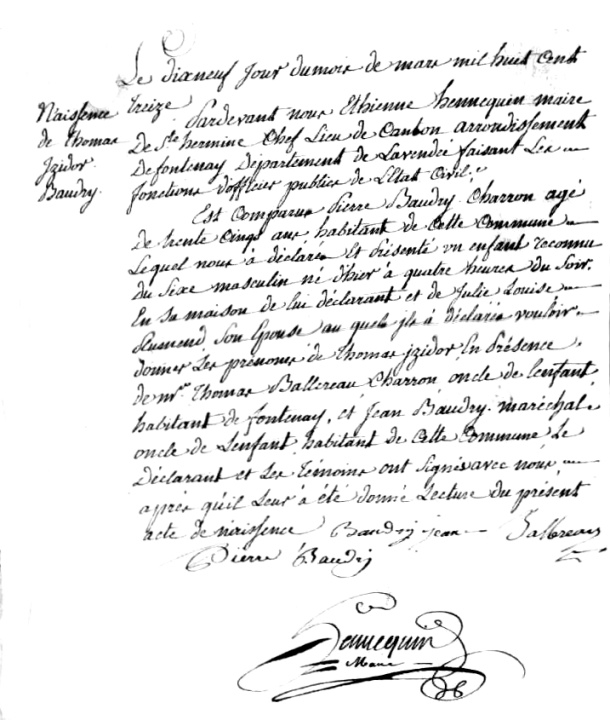 Naissence
de Thomas
Izidor
Baudry.
Le dixneuf Jour du mois de mars mil huit cent
treize Pardevant nous Ethienne hennequin maire
De Ste hermine Chef Lieu de Canton arrondissement
De fontenay Departement de Lavendée faisant Les
fonctions d'officier publier de L'Etat Civil.
Est Comparus Pierre Baudry Charron agé
de trente Cinqs ans habitant de Cette Commune
Lequel nous à déclarés Et Présenté un enfant reconnu
du Sexe masculin né d'hier à quatre heures du Soir.
En sa maison de lui déclarant et de Julie Louise
Son Epouse au quels jls à déclarés vouloir
donner Les prénoms de Thomas jzidor, En Présence
de mr. Thomas Ballereau Charron, oncle de Lenfant,
habitant de fontenay, et Jean Baudry maréchal
oncle de Lenfant, habitant de Cette Commune Le
Déclarant et Les Témoins ont signés avec nous,
après qu'il Leur à été donné Lecture du présent
acte de naissence Baudry jean Balreau
Pierre Baudry
hennequin
Maire